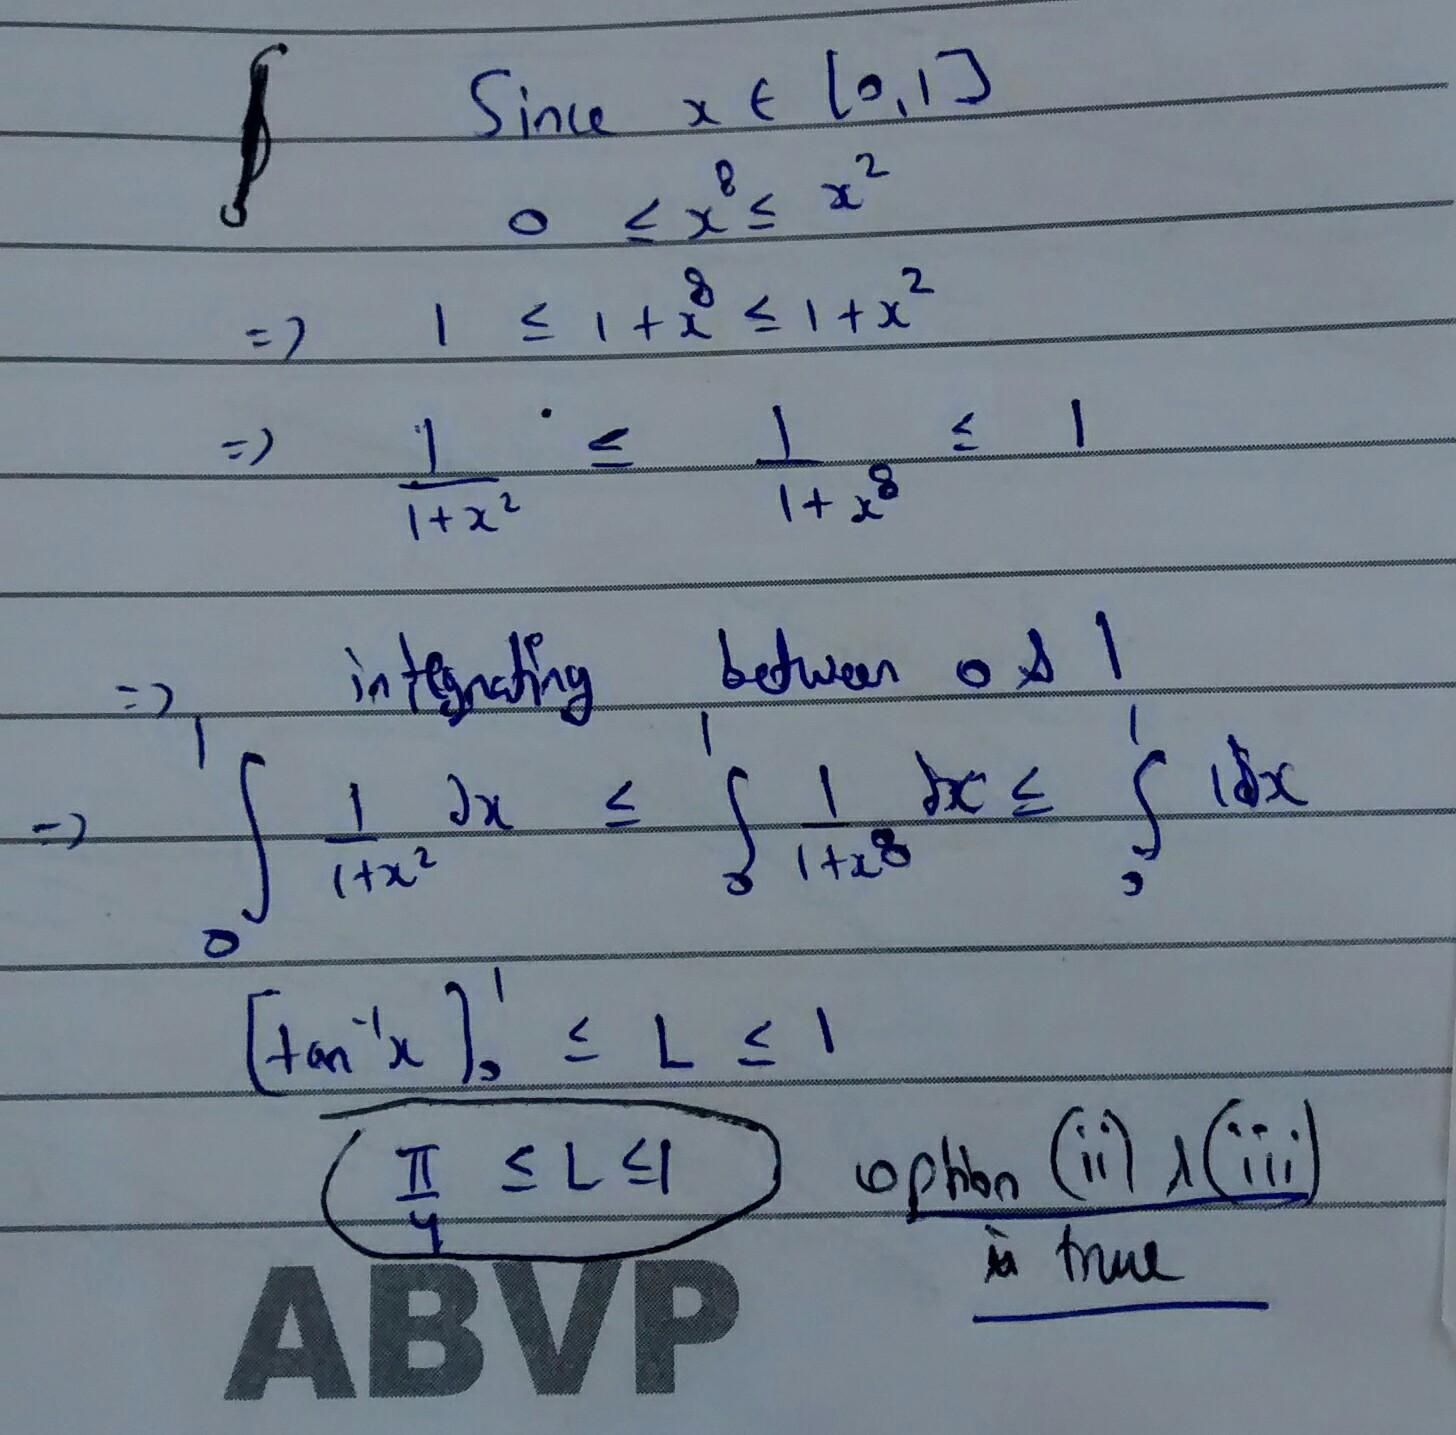 Since x ∈ [0,1]
0 ≤ x⁸ ≤ x²
=> 1 ≤ 1+x⁸ ≤ 1+x²
=> 1/(1+x²) ≤ 1/(1+x⁸) ≤ 1
=> integrating between 0 & 1
=> ∫₀¹ 1/(1+x²) dx ≤ ∫₀¹ 1/(1+x⁸) dx ≤ ∫₀¹ 1dx
[tan⁻¹x]₀¹ ≤ L ≤ 1
π/4 ≤ L ≤ 1 option (ii) & (iii)
is true
ABVP